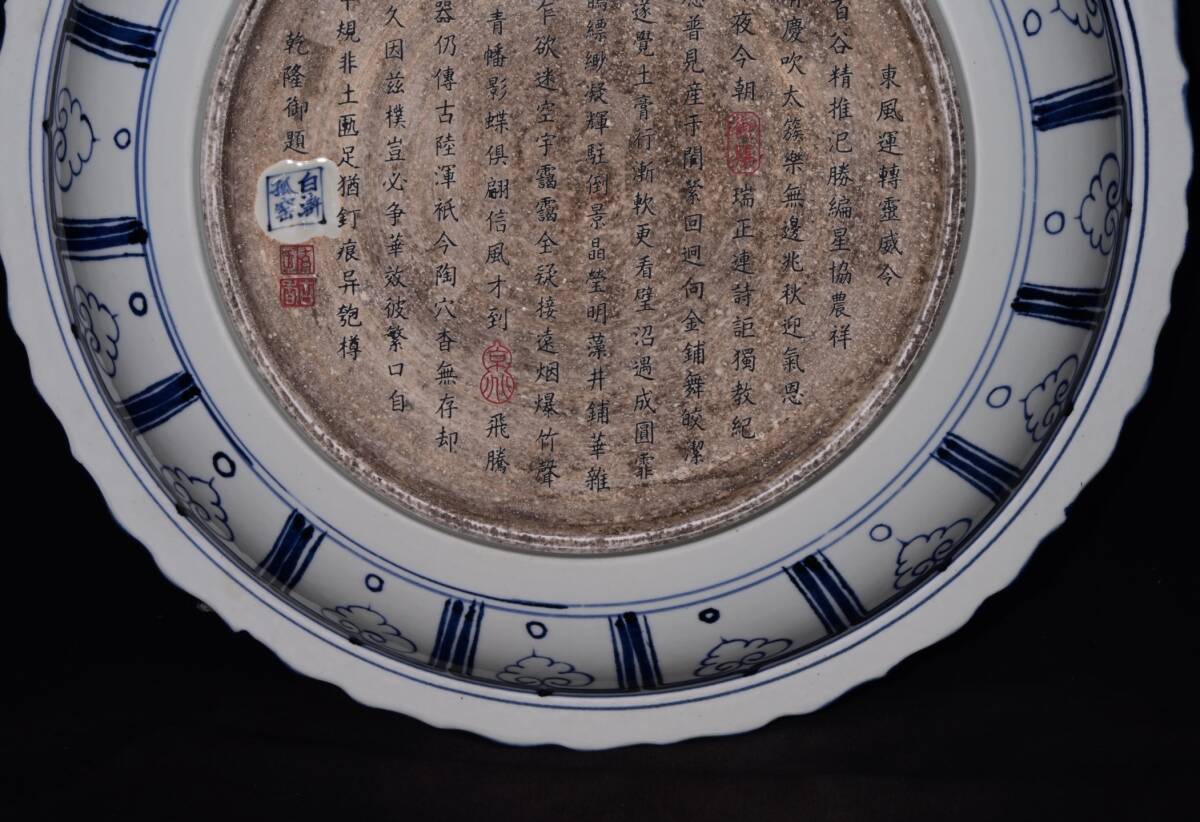 東風運轉靈威令
百谷精推汜勝編星協農祥
慶吹太簇樂無邊兆秋迎氣恩
夜今朝
瑞正連詩詎獨教紀
普見産于闐縈回迥向金鋪舞皎潔
遂覺土膏行漸軟更看璧沼遇成圓霏
縹緲凝輝駐倒景晶瑩明藻井鋪華雜
乍欲迷空宇靄靄全疑接遠烟爆竹聲
青幡影蝶俱翩信風才到
京兆
飛騰
器仍傳古陸渾祇今陶穴杳無存却
久因兹樸豈必争華效彼繁口自
規非土匭足猶釘痕异匏樽
乾隆御題
白滸
孤窑